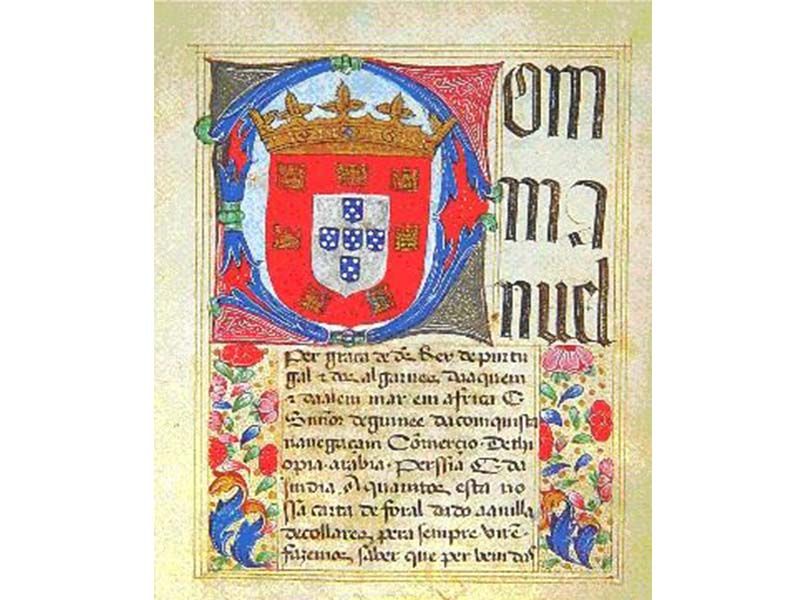 Dom
ma
nuel
Per graca de ds Rey de purtu
gal & dos algarues daaquem
& daalem mar em africa E
Senor de guinee da comquista
nauegacam Comercio. Dethi
opia. arabia. Perssia E da
india. A quamtos esta no
ssa carta de foral dado aa villa
de collares pera sempre virē
fazemos saber que per bem das